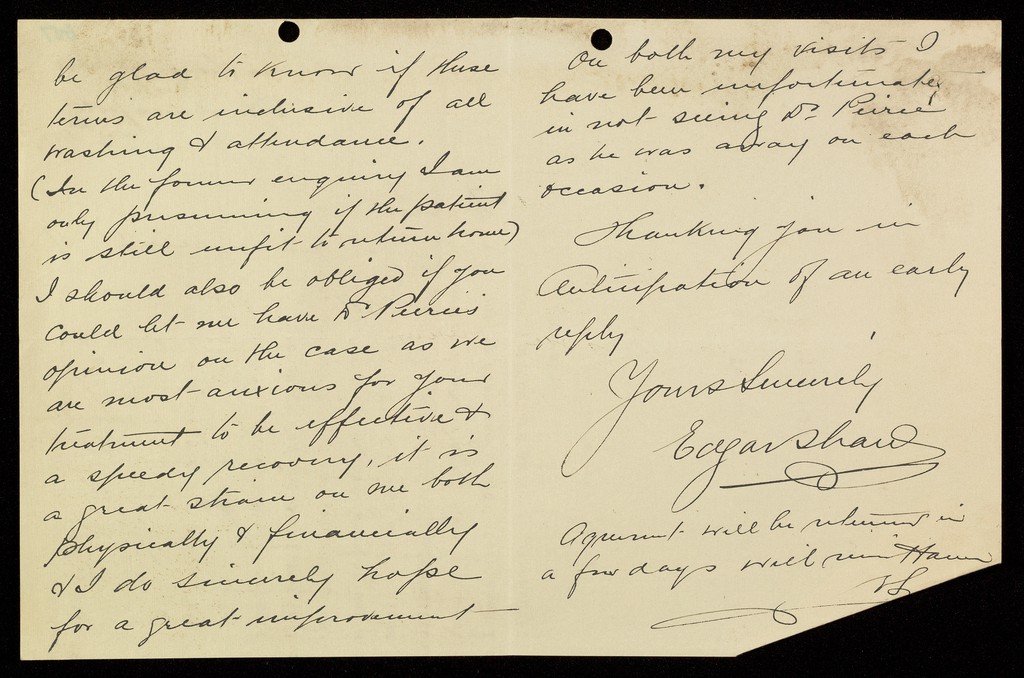 be glad to know if these
terms are inclusive of all
washing & attendance.
(In the former enquiry I am
only presuming if the patient
is still unfit to return home)
I should also be obliged if you
could let me have Dr Peirie's
opinion on the case as we
are most anxious for your
treatment to be effective &
a speedy recovery, it is
a great strain on me both
physically & financially
& I do sincerely hope
for a great improvement
On both my visits I
have been unfortunate
in not seeing Dr Peirie
as he was away on each
occasion.
Thanking you in
Anticipation of an early
reply
Yours Sincerely
Edgar Shaw
Agreement will be returned in
a few days with